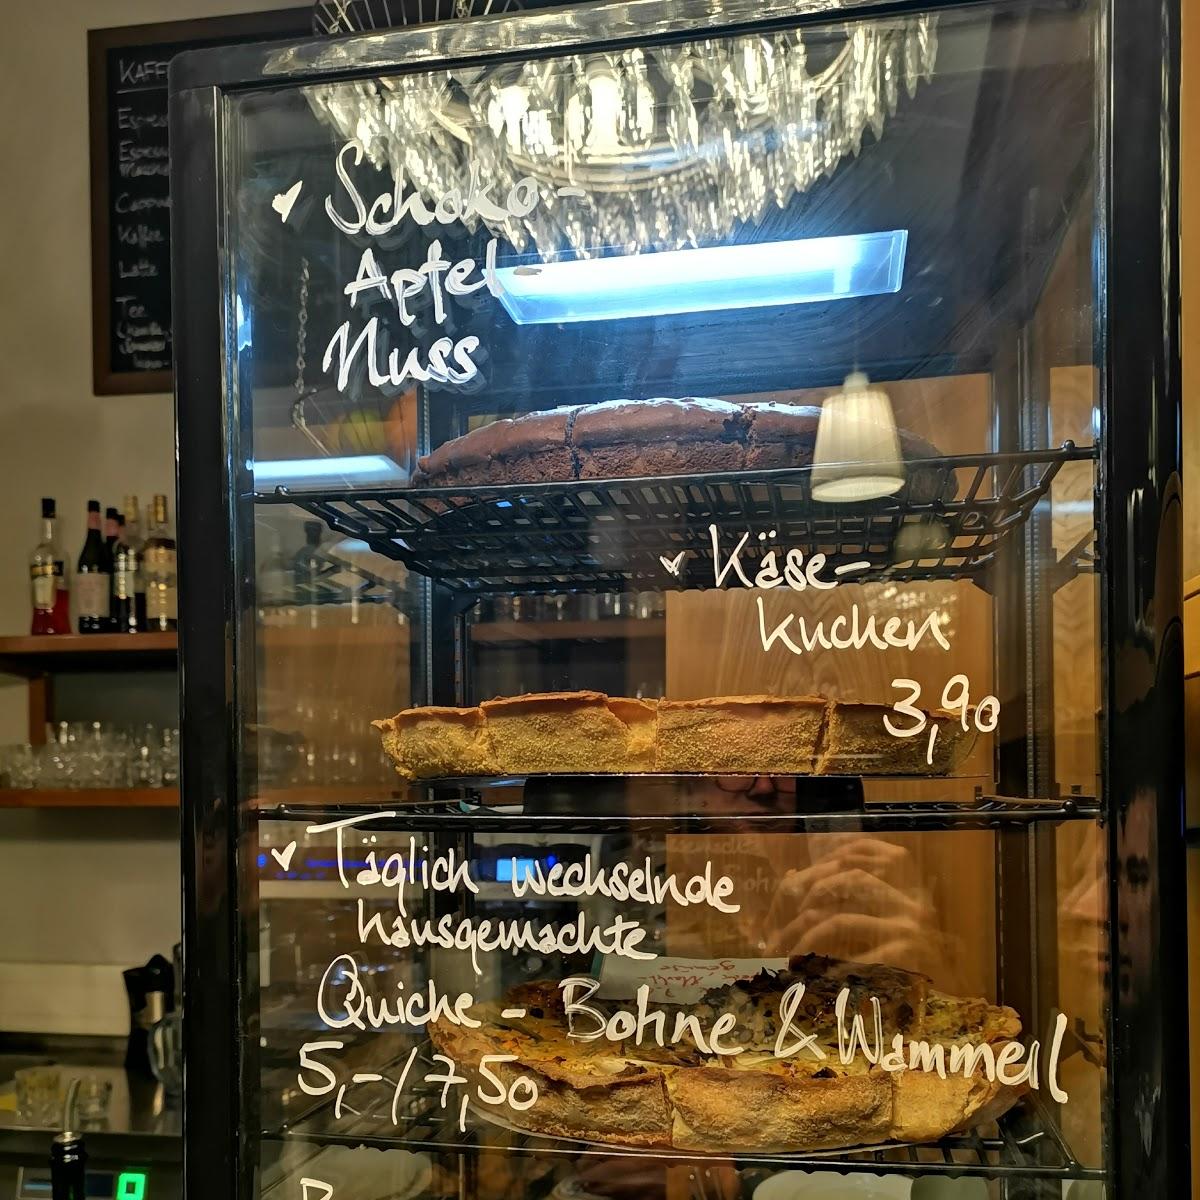 KAFF
Espres
Espress
Cappu
Kaffee
Latte
Tee
Schoko-
Apfel
Nuss
Käse-
kuchen
3,90
Täglich wechselnde
hausgemachte
Quiche - Bohne & Wammerl
5,-/7,50